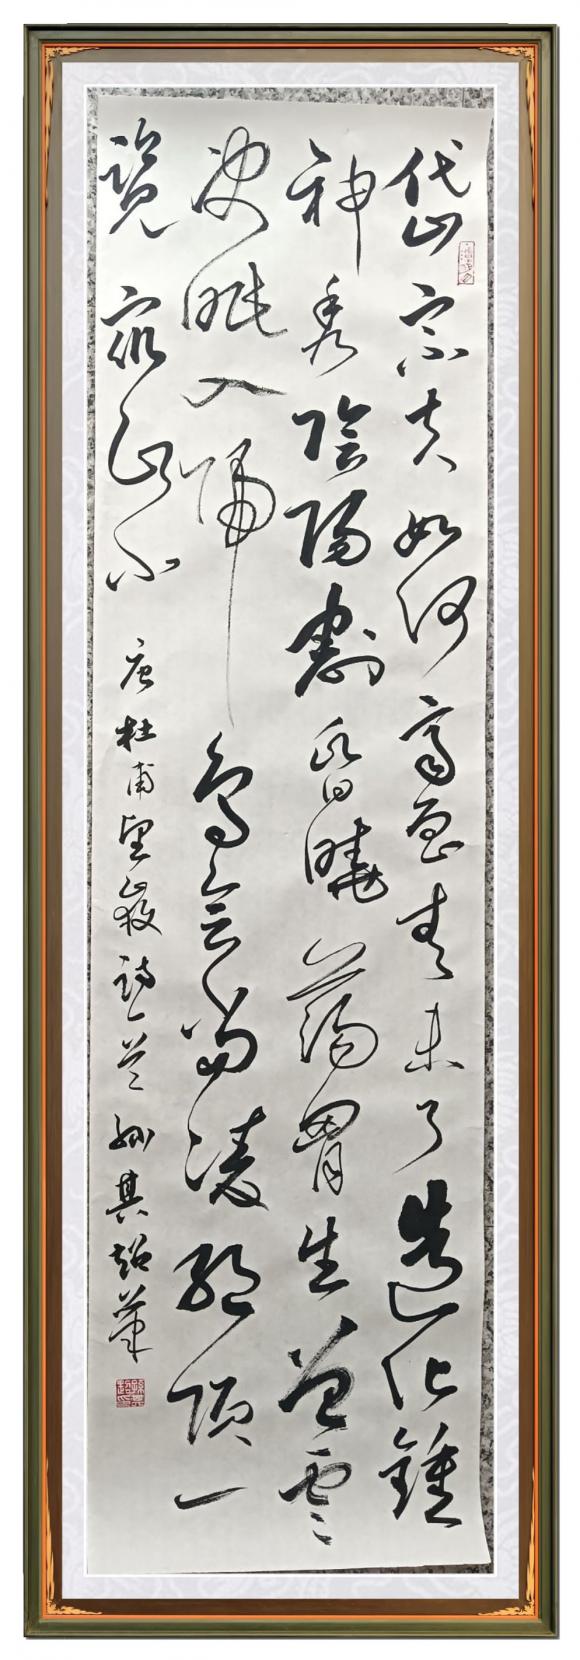 岱宗夫如何齊魯青未了造化鍾
神秀陰陽割昏曉蕩胸生曾雲
決眦入歸鳥會當凌絕頂一
覽眾山小 唐杜甫望嶽詩一首 孫其超筆